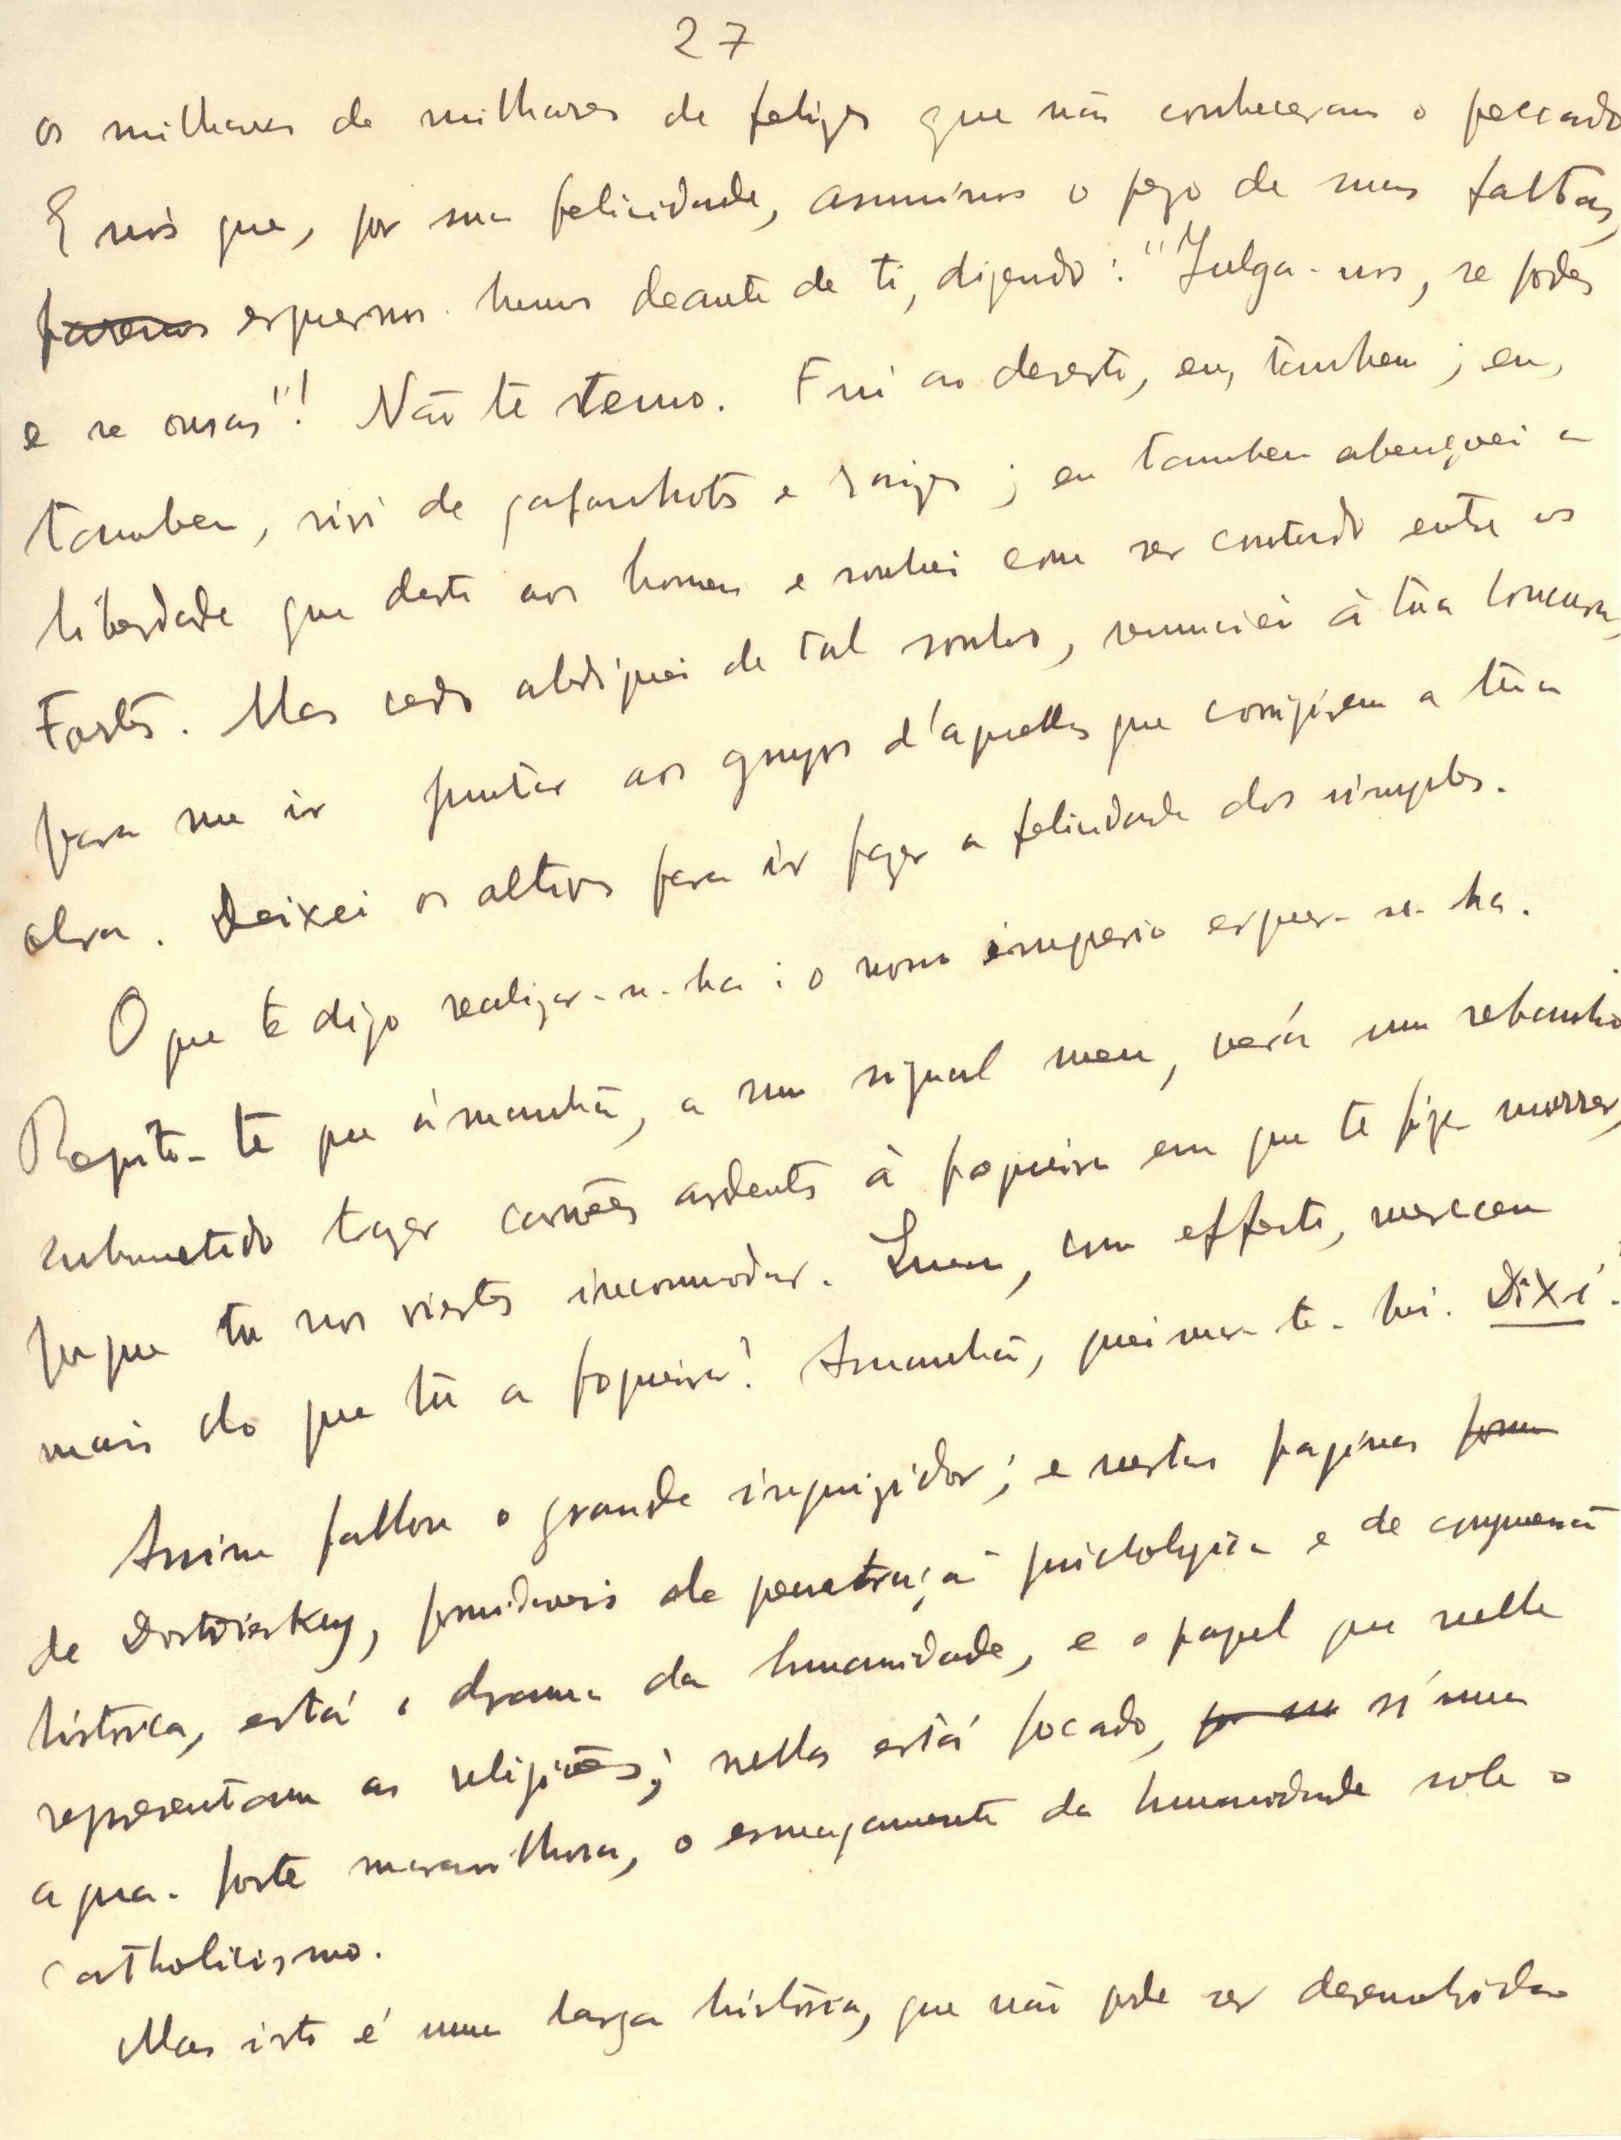 27
os milhares de milhares de felizes que não conheceram o peccado
E nós que, por sua felicidade, assumimos o pezo de suas faltas,
faremos erguernos-hemos deante de ti, dizendo: "Julga-nos, se podes
e se ousas"! Não te temo. Fui ao deserto, eu, tambem; eu,
tambem, vivi de gafanhotos e raizes; eu tambem abençoei a
liberdade que deste aos homens e sonhei com ser contado entre os
Fortes. Mas cedo abdiquei de tal sonho, renunciei á tua loucura,
para me ir juntar aos grupos d'aquelles que corrigirem a tua
obra. Deixei os altivos para ir fazer a felicidade dos simples.
O que te digo realizar-se-ha: o nosso imperio erguer-se-ha.
Repito-te que ámanhã, a um signal meu, verás um rebanho
submetido trazer carvões ardentes á fogueira em que te fize morrer,
porque tu nos viestes incommodar. Quem, com effeito, mereceu
mais do que tu a fogueira? Amanhã, queimar-te-hei. Dixi.
Assim fallou o grande inquizidor; e nestas paginas
de Dostoiewsky, formidaveis de penetração psicologica e de compreensão
historica, está o drama da humanidade, e o papel que nella
representam as religiões; nellas está focado, por um n'uma
agua-forte maravilhosa, o esmagamento da humanidade sob o
catholicismo.
Mas isto é uma larga história, que não pode ser desenvolvida